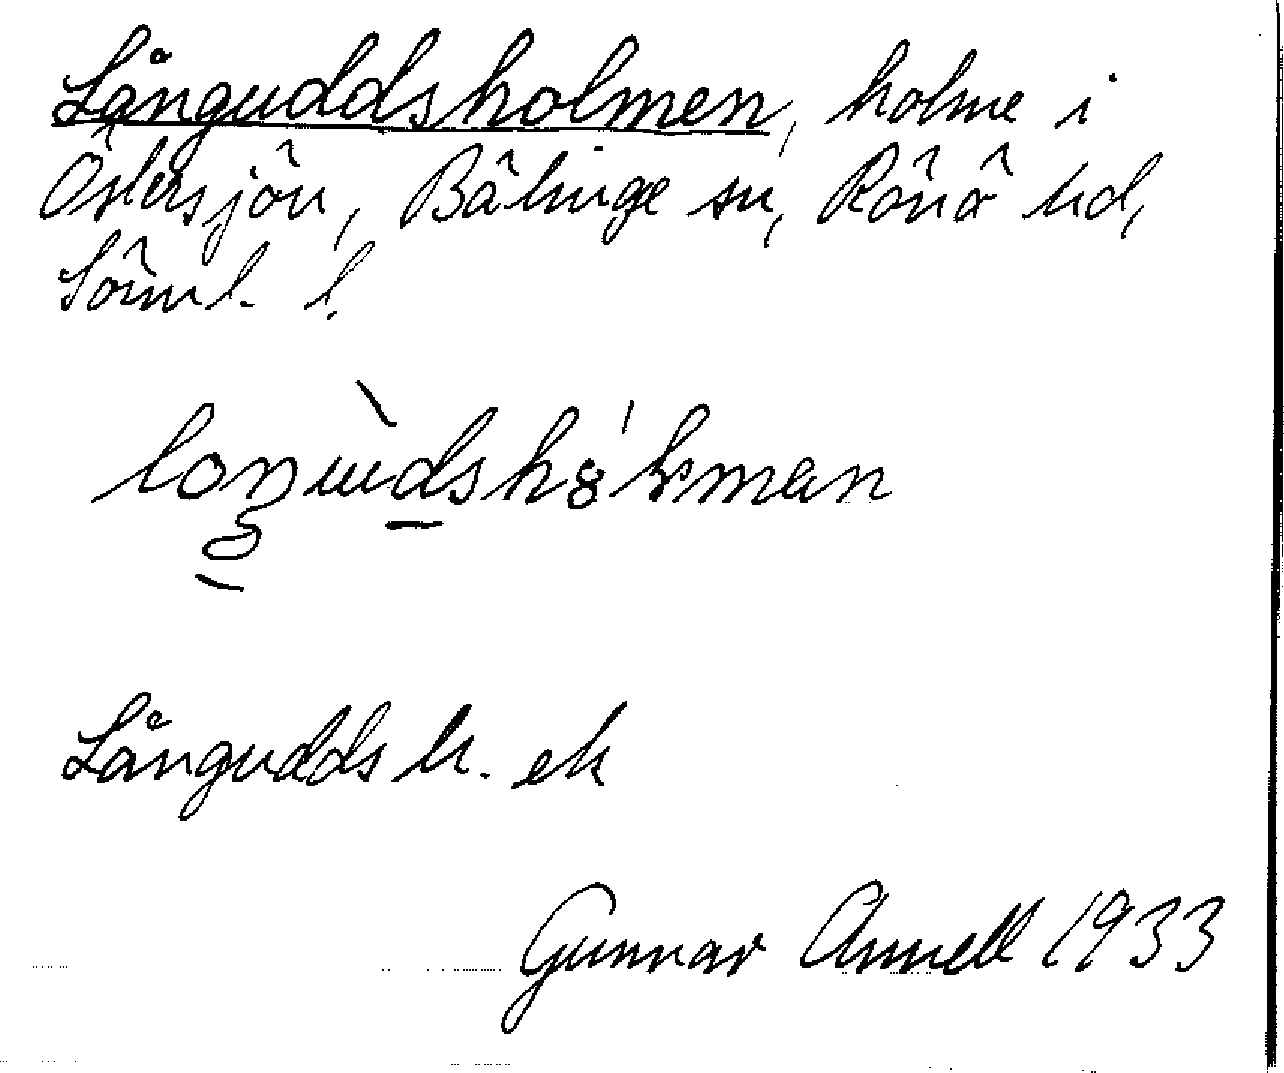 Långuddsholmen, holme i
Östersjön, Bälinge sn, Rönö hd,
Söml. l.
Långuddsh. ek
Gunnar Annell 1933